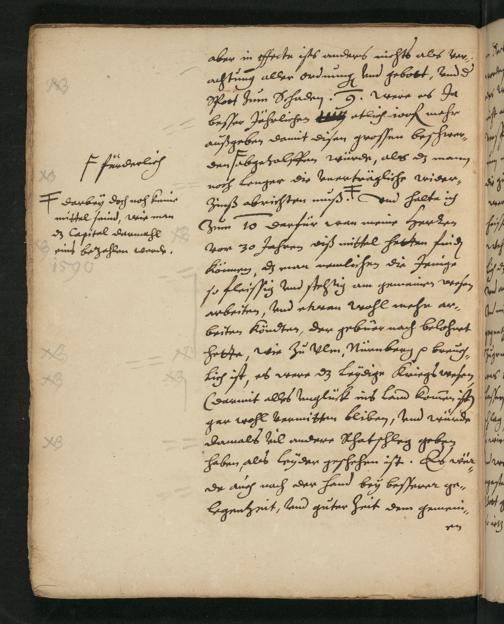 aber in effecte ists anders nichts als ver-
achtung aller ordnung und gebott, und d
Spott zum Schaden. 9. were es Ja
besser Jährlichen etlich mehr
außgeben damit disen grossen beschwer-
den abgeholffen würde, als dz mann
noch lenger die unerträgliche wider-
Zinß abrichten muß. Und halte ich
Zum 10 darfür wan meine herren
vor 30 Jahren diß mittel hetten
können, dz man nemlichen die Jenige
so fleissig und am gemeinen wesen
arbeiten, und etwan wohl mehr ar-
beiten kündten, der gebüer nach belohnet
hette, wie zu Ulm, Nürnberg breuch-
lich ist, es were dz leydige Kriegs wesen,
(darmit alles unglück ins land komen ist)
gar wohl vermitten bliben, und würde
damals vil andere Rhatschleg geben
haben, als leyder geschehen ist. Es wür-
de auch nach der hand bey besserer ge-
legenheit, und guter Zeit dem gemein-
en
fürderlich
darbey doch noch keine
mittel seind, wie man
dz Capital dermahl
eins bezahlen werde.
1590